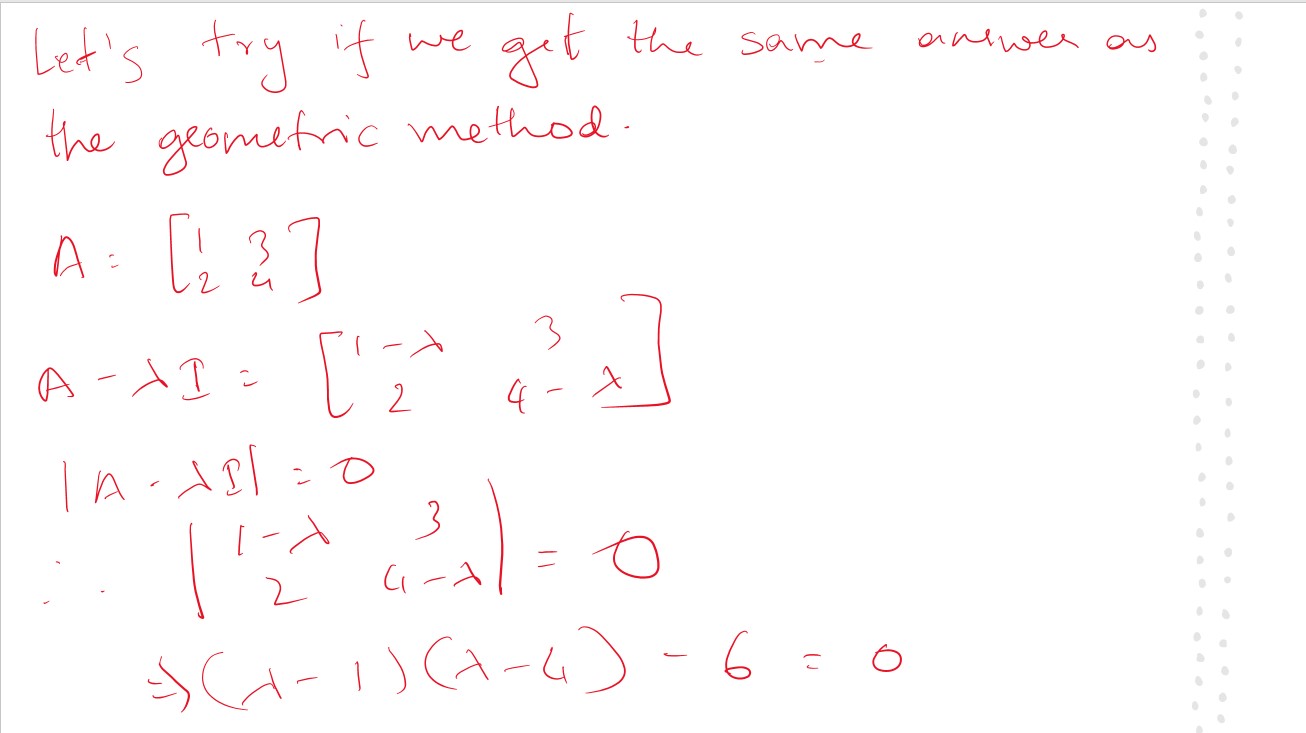 Let's try if we get the same answer as
the geometric method.
A = [1 3
2 4]
A - λI = [1-λ 3
2 4-λ]
|A - λI| = 0
∴ |1-λ 3
2 4-λ| = 0
⇒ (λ-1)(λ-4) - 6 = 0